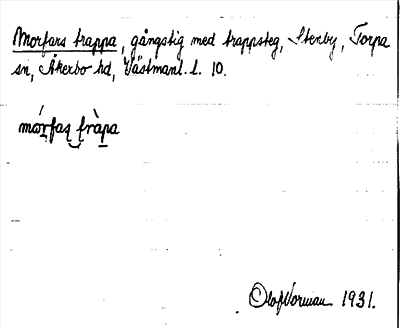 Morfars trappa, gångstig med trappsteg, Stenby, Torpa
sn, Åkerbo hd, Västmanl. l. 10.
mórfaʂ fràpa
Olof Norman 1931.